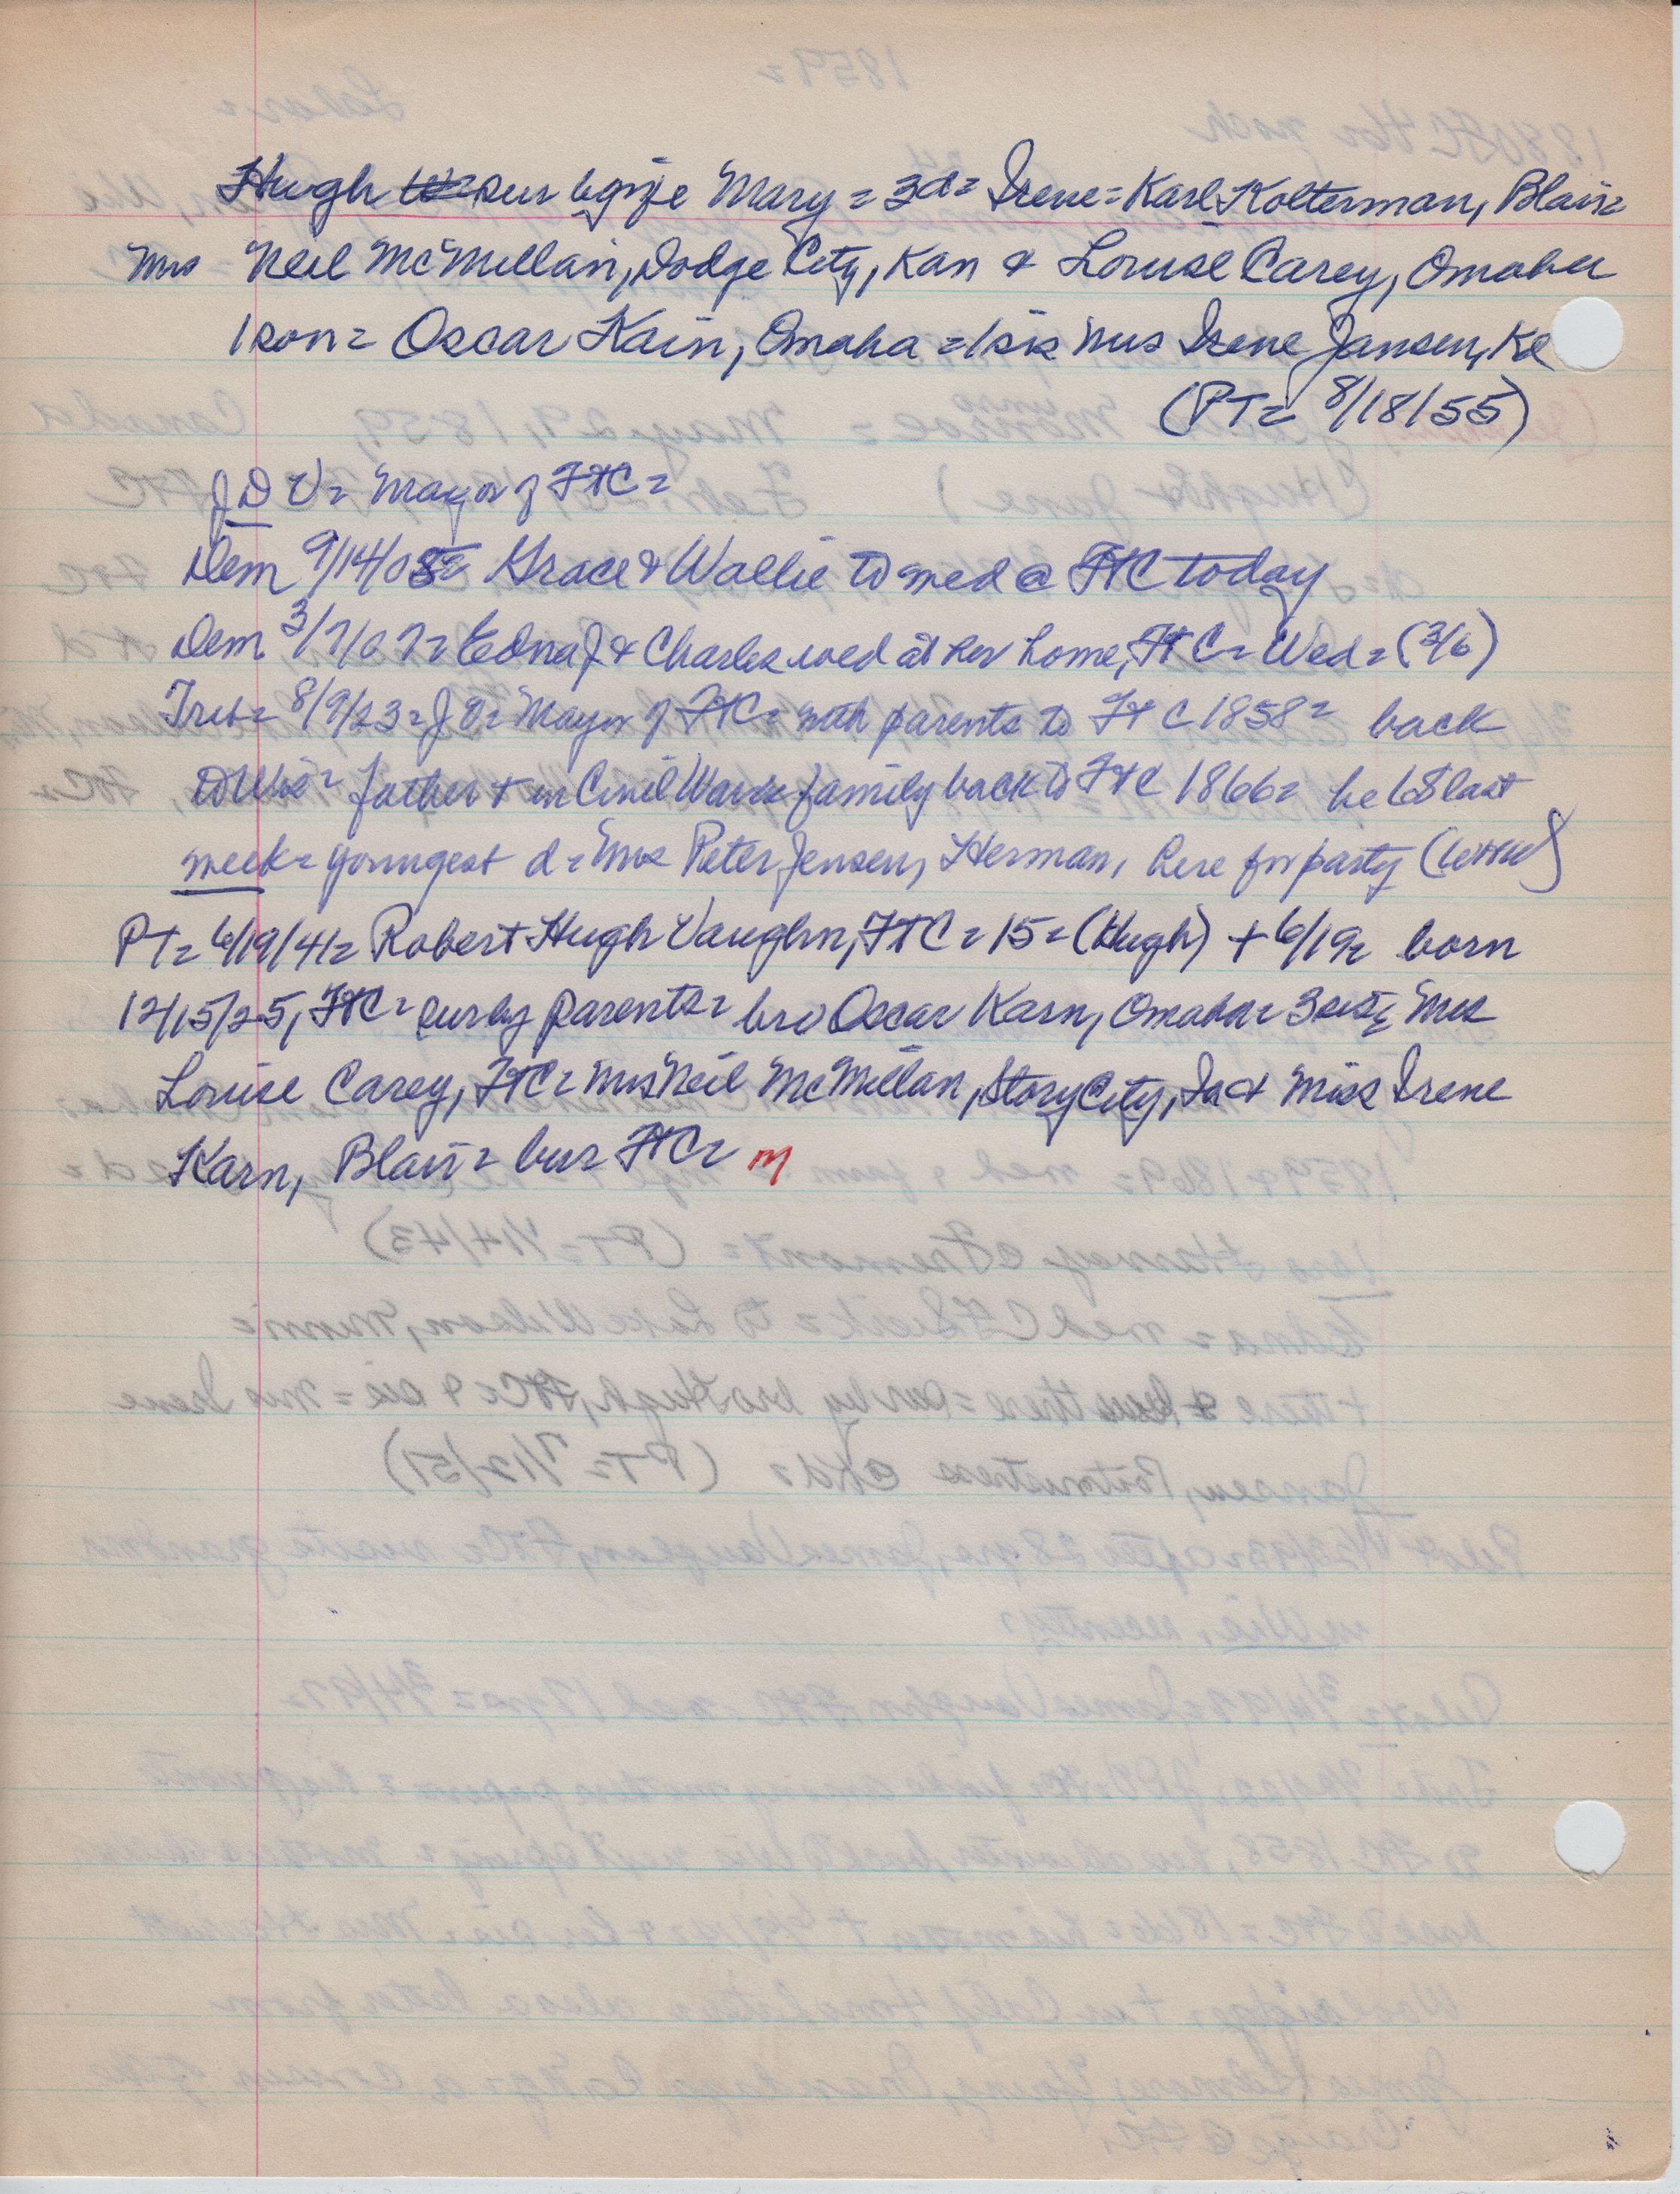 Hugh sur by wife Mary = 3d = Irene = Karl Kolterman, Blair =
Mrs Neil McMillan, Dodge City, Kan & Louise Carey, Omaha
1 son = Oscar Kain, Omaha = 1 sis Mrs Irene Jansen, Kd
(PT = 8/18/55)
J D V = Mayor of FTC =
Dem 9/14/05 = Grace & Wallie to wed @ FTC today
Dem 3/7/07 = Edna J & Charles wed at her home, FTC = Wed = (3/6)
Trib = 8/9/23 = J V = Mayor of FTC = with parents to FTC 1858 = back
to Wis = father + in Civil War = family back to FTC 1866 = he 68 last
week = youngest d = Mrs Peter Jensen, Herman, here for party
PT = 6/19/41 = Robert Hugh Vaughn, FTC = 15 = (Hugh) + 6/19 = born
12/15/25, FTC = sur by parents = bro Oscar Karn, Omaha = 3 sis = Mrs
Louise Carey, FTC = Mrs Neil McMillan, Story City, Ia & Miss Irene
Karn, Blair = bur FTC = m